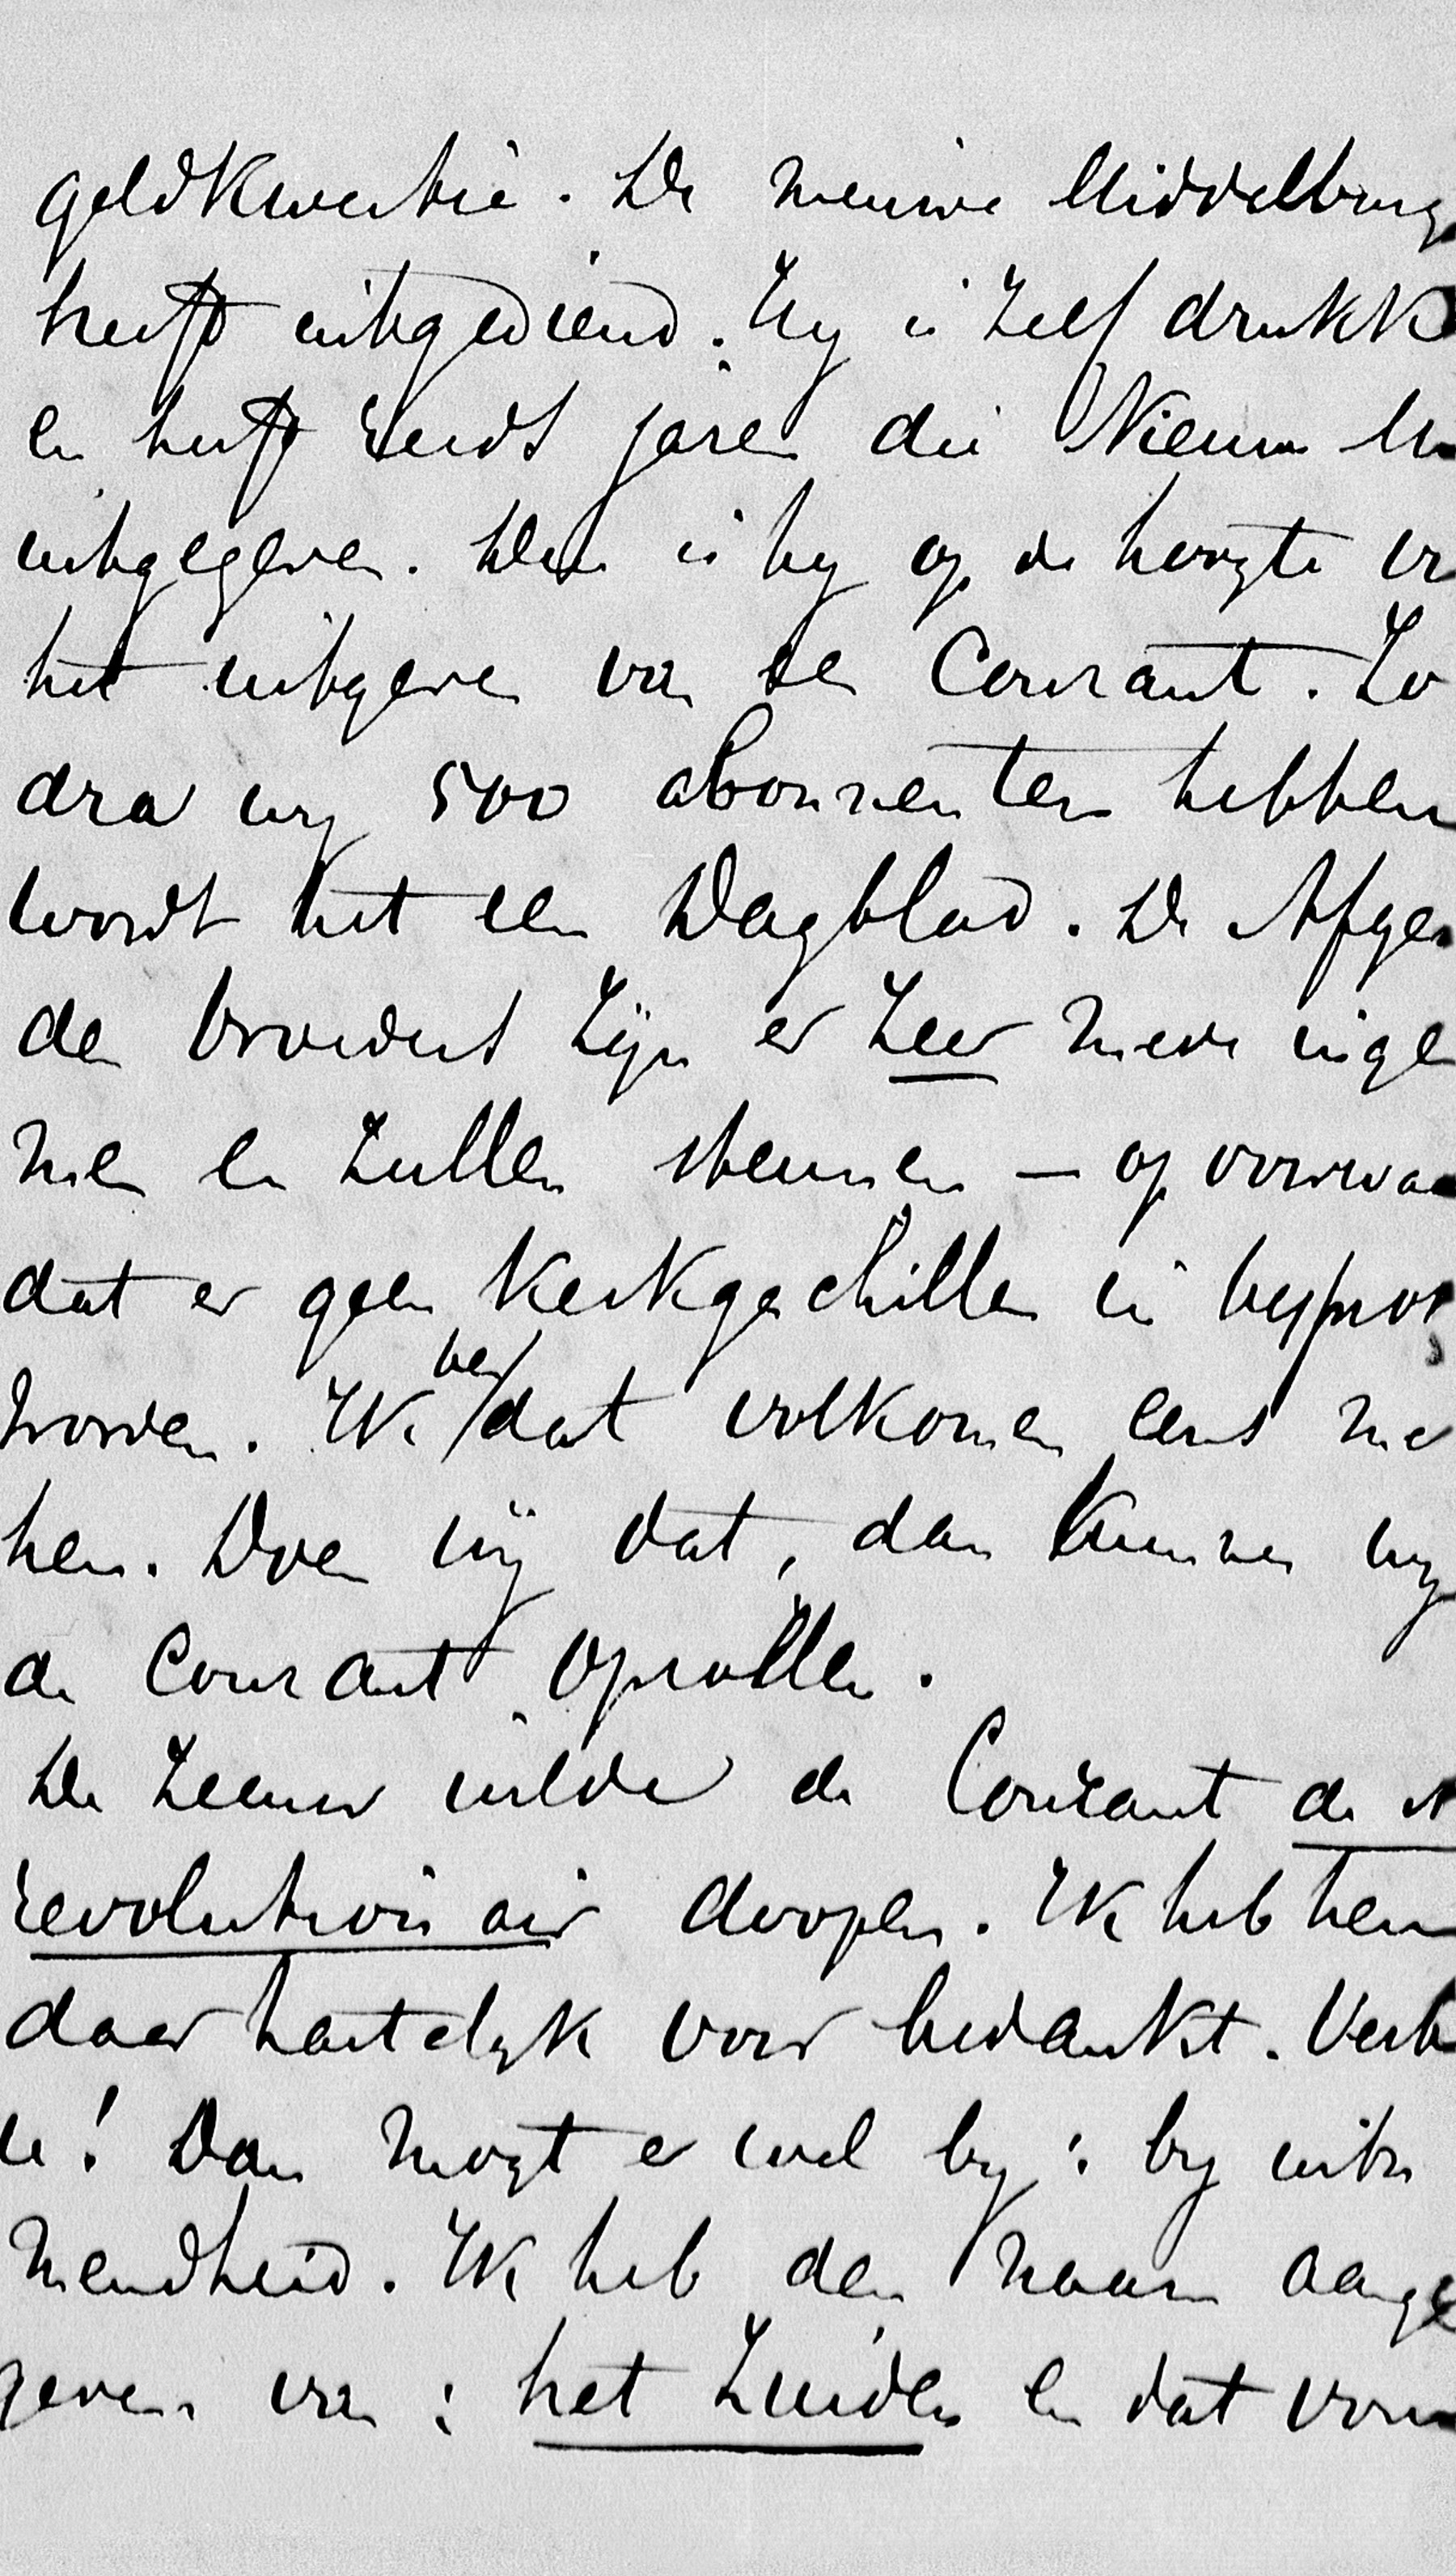 geldkwestie. De nieuwe Middelburg
heeft uitgediend. Hy is zelf drukk
en heeft reeds jaren die Nieuwe M
uitgegeven. Dus is hy op de hoogte v
het uitgeven van een Courant. Zo
dra wy 500 abonnenten hebben
wordt het een Dagblad. De Afge
den broeders zijn er zeer mede inge
men en zullen steunen — op voorwaa
dat er geen Kerkgeschillen in besprok
worden. Ik ben dat volkomen eens me
hen. Doen wij dat, dan kunnen wy
de Courant oprollen.
De Zeeuw wilde de Courant de A
revolutionair doopen. Ik heb hem
daar hartelyk voor bedankt. Verb
! Dan mogt er wel by: by uitn
mendheid. Ik heb den naam aange
geven van: het Zuiden en dat von